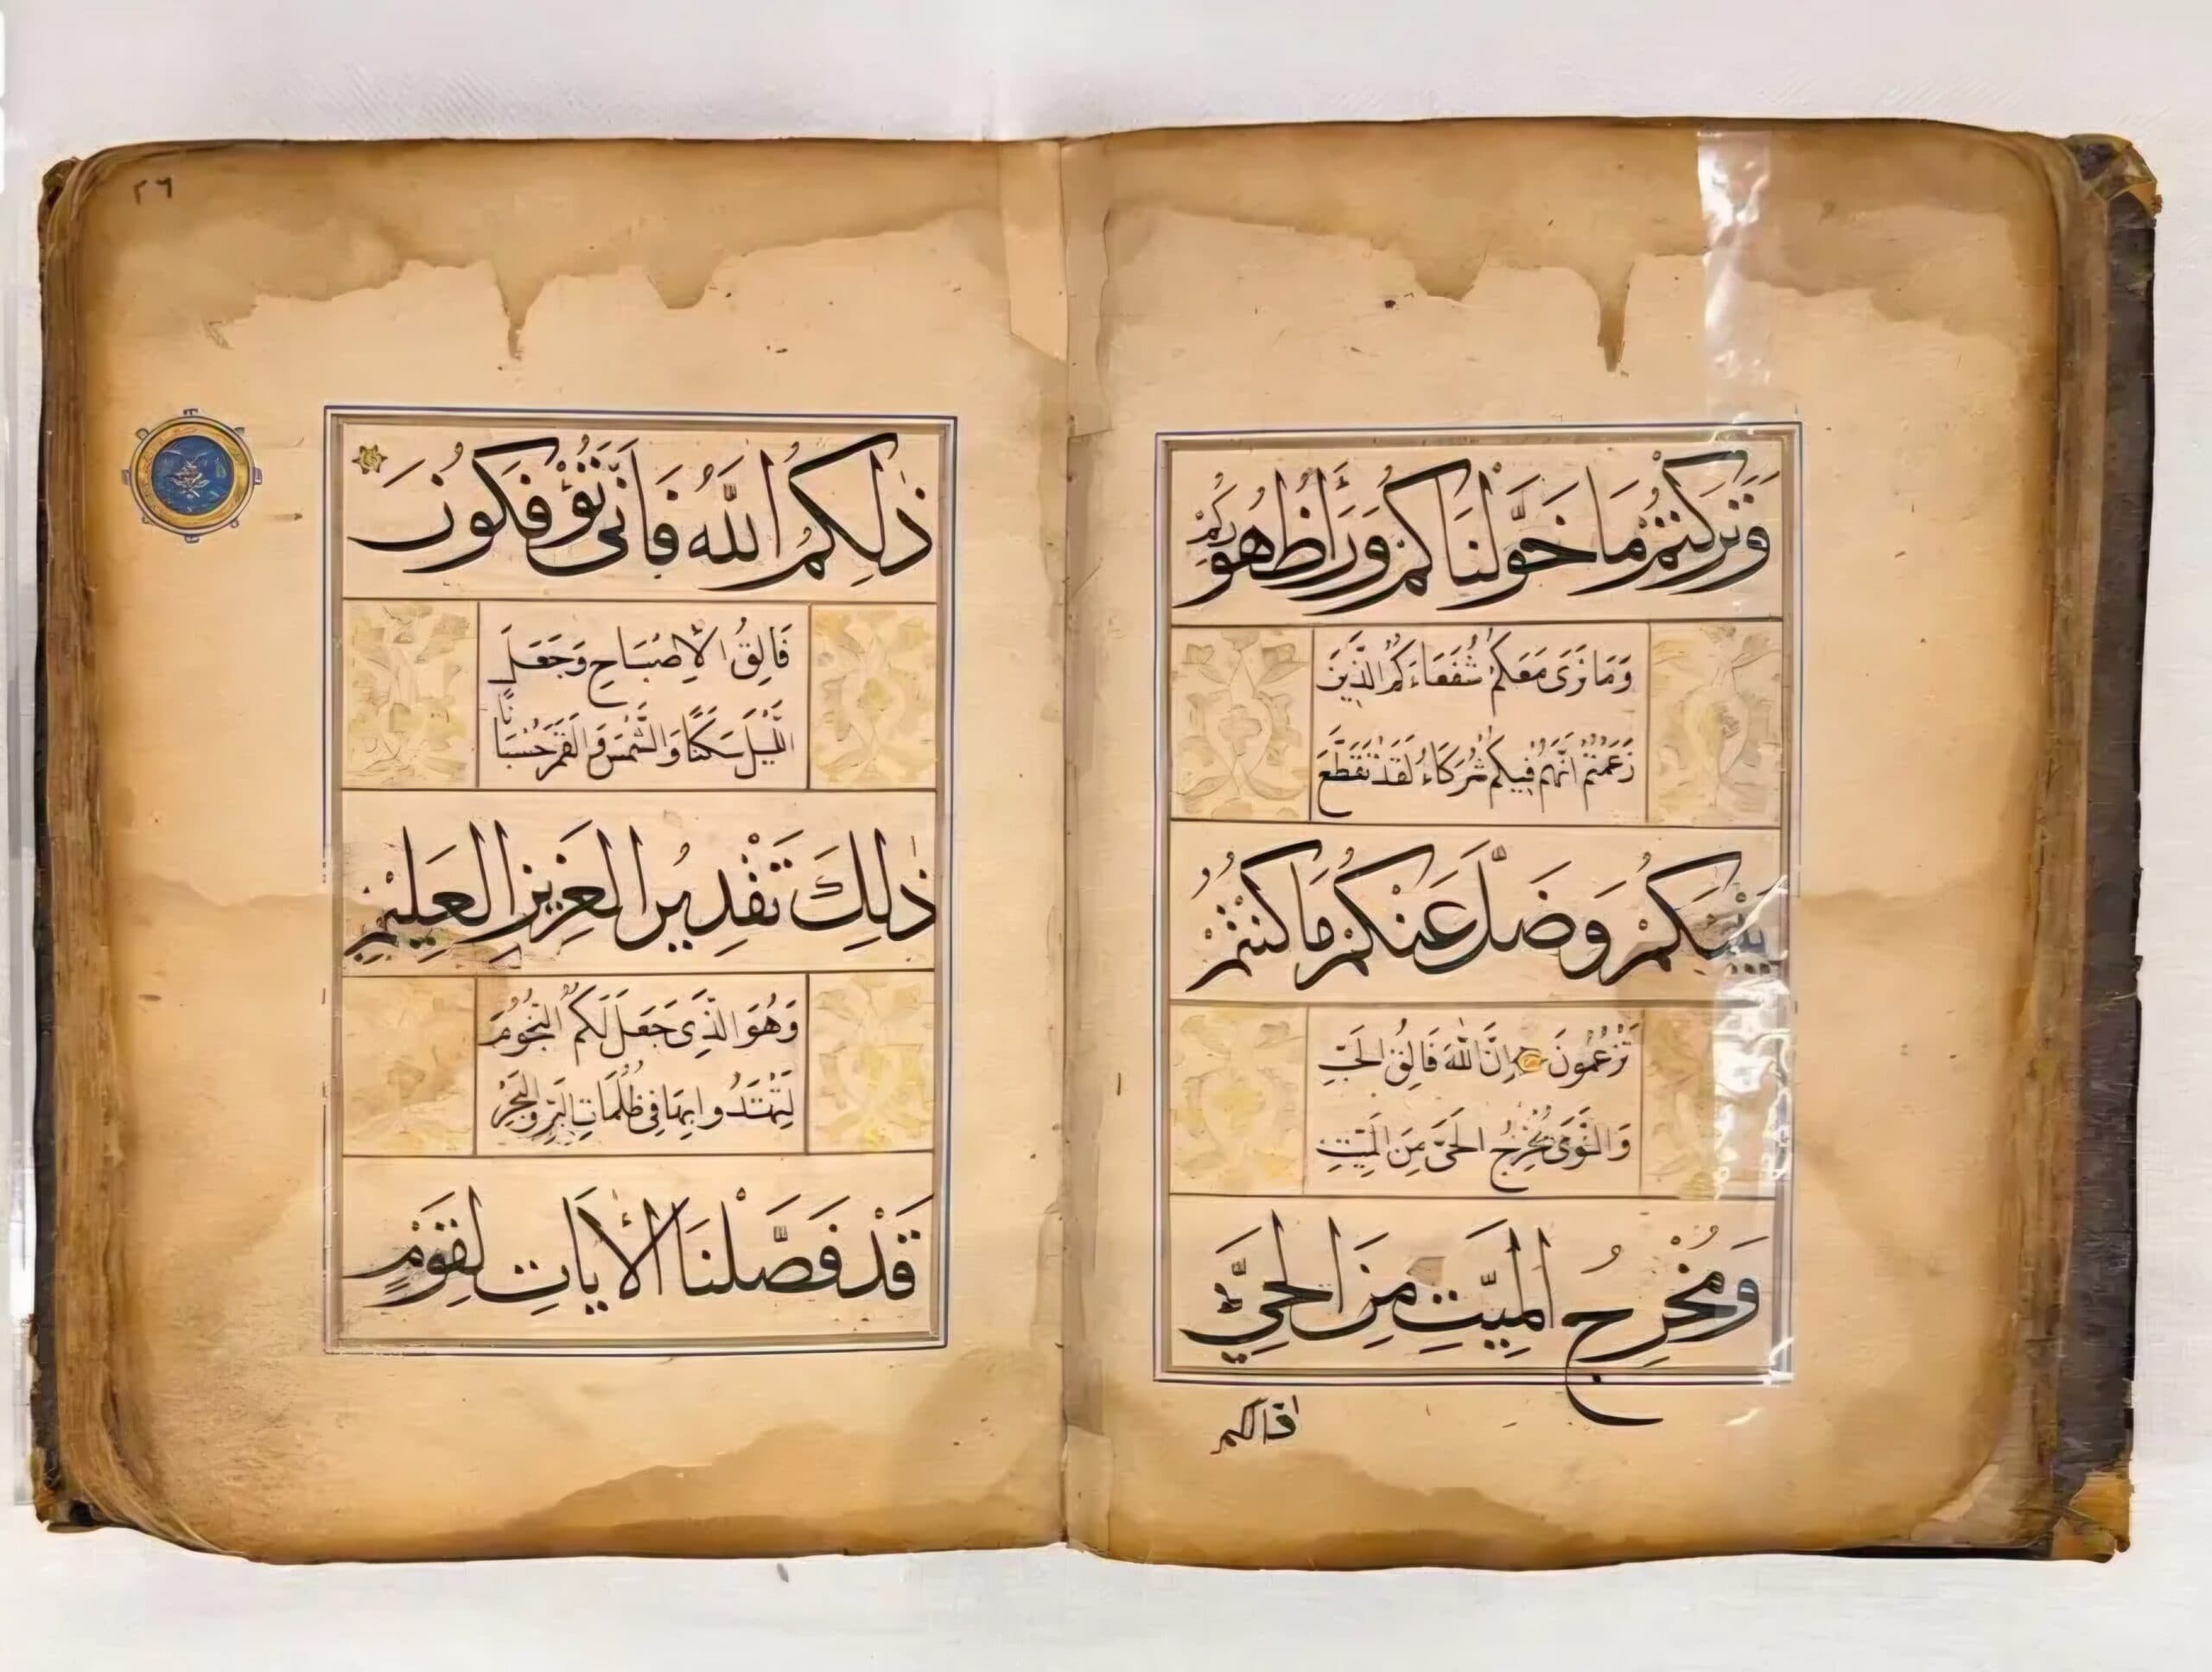 وَتَرَكْتُمْ مَا خَوَّلْنَاكُمْ وَرَاءَ ظُهُورِكُمْ
وَمَا نَرَى مَعَكُمْ شُفَعَاءَكُمُ الَّذِينَ
زَعَمْتُمْ أَنَّهُمْ فِيكُمْ شُرَكَاءُ لَقَدْ تَقَطَّعَ
بَيْنَكُمْ وَضَلَّ عَنْكُمْ مَا كُنْتُمْ
تَزْعُمُونَ إِنَّ اللَّهَ فَالِقُ الْحَبِّ
وَالنَّوَى يُخْرِجُ الْحَيَّ مِنَ الْمَيِّتِ
وَمُخْرِجُ الْمَيِّتِ مِنَ الْحَيِّ
٢٦
ذٰلِكُمُ اللَّهُ فَأَنَّى تُؤْفَكُونَ
فَالِقُ الْإِصْبَاحِ وَجَعَلَ
اللَّيْلَ سَكَنًا وَالشَّمْسَ وَالْقَمَرَ حُسْبَانًا
ذٰلِكَ تَقْدِيرُ الْعَزِيزِ الْعَلِيمِ
وَهُوَ الَّذِي جَعَلَ لَكُمُ النُّجُومَ
لِتَهْتَدُوا بِهَا فِي ظُلُمَاتِ الْبَرِّ وَالْبَحْرِ
قَدْ فَصَّلْنَا الْآيَاتِ لِقَوْمٍ